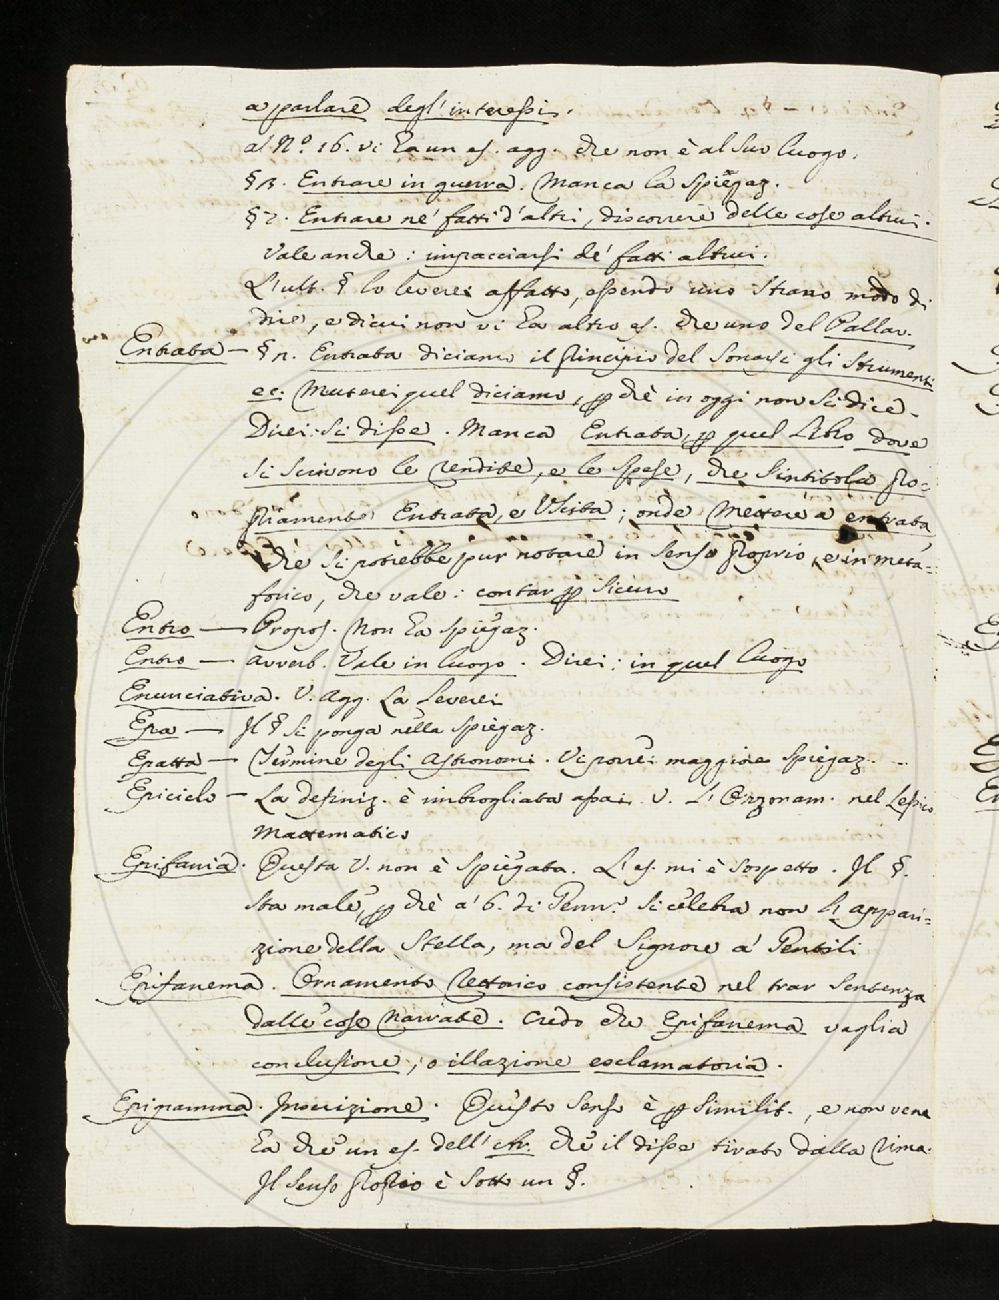 a parlare degl'interessi.
al N.º 16. vi ha un es. agg. che non è al suo luogo.
§ 13. Entrare in guerra. Manca la spiegaz.
§ 2. Entrare ne' fatti d'altri, discorrere delle cose altrui.
Vale anche: impacciarsi de' fatti altrui.
L'ult. § lo leverei affatto, essendo uno strano modo di
dire, e di cui non vi ha altro es. che uno del Pallav.
Entrata – § n. Entrata diciamo il principio del sonarsi gli strumenti
ec: Muterei quel diciamo, p chè in oggi non si dice.
Direi: si disse. Manca Entrata, p quel Libro dove
si scrivono le rendite, e le spese, che s'intitola pro-
priamente Entrata, e Uscita; onde Mettere a entrata
che si potrebbe pur notare in senso proprio, e in meta-
forico, che vale: contar p sicuro
Entro — Propos. Non ha spiegaz.
Entro — avverb. Vale in luogo. Direi: in quel luogo
Enunciativa. V. Agg. La leverei
Epa — Il § si ponga nella spiegaz.
Epatta — Termine degli Astronomi. Vi porrei maggiore spiegaz.
Epiciclo – La definiz. è imbrogliata assai. V. L'Ozzonam. nel Lessico
Mattematico
Epifania. Questa V. non è spiegata. L'es. mi è sospetto. Il §.
sta male, p chè a' 6. di Genn.º si celebra non l'appari-
zione della Stella, ma del Signore a' Gentili
Epifonema. Ornamento Rettorico consistente nel trar sentenza
dalle cose narrate. Credo che Epifonema vaglia
conclusione, o illazione esclamatoria.
Epigramma. Inscrizione. Questo senso è p similit., e non ve n'
ha che un es. dell' che il disse tirato dalla rima.
Il senso proprio è sotto un §.